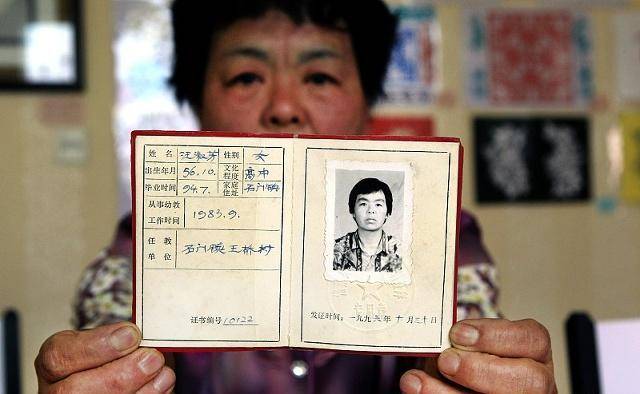 姓名 汪淑芳 性别 女
出生年月 56.10. 文化程度 高中
毕业时间 94.7. 家庭住址 石门镇
从事幼教
工作时间 1983.9.
任教
单位 石门镇王桥村
证书编号 10122
发证时间：一九九 年十月三十日